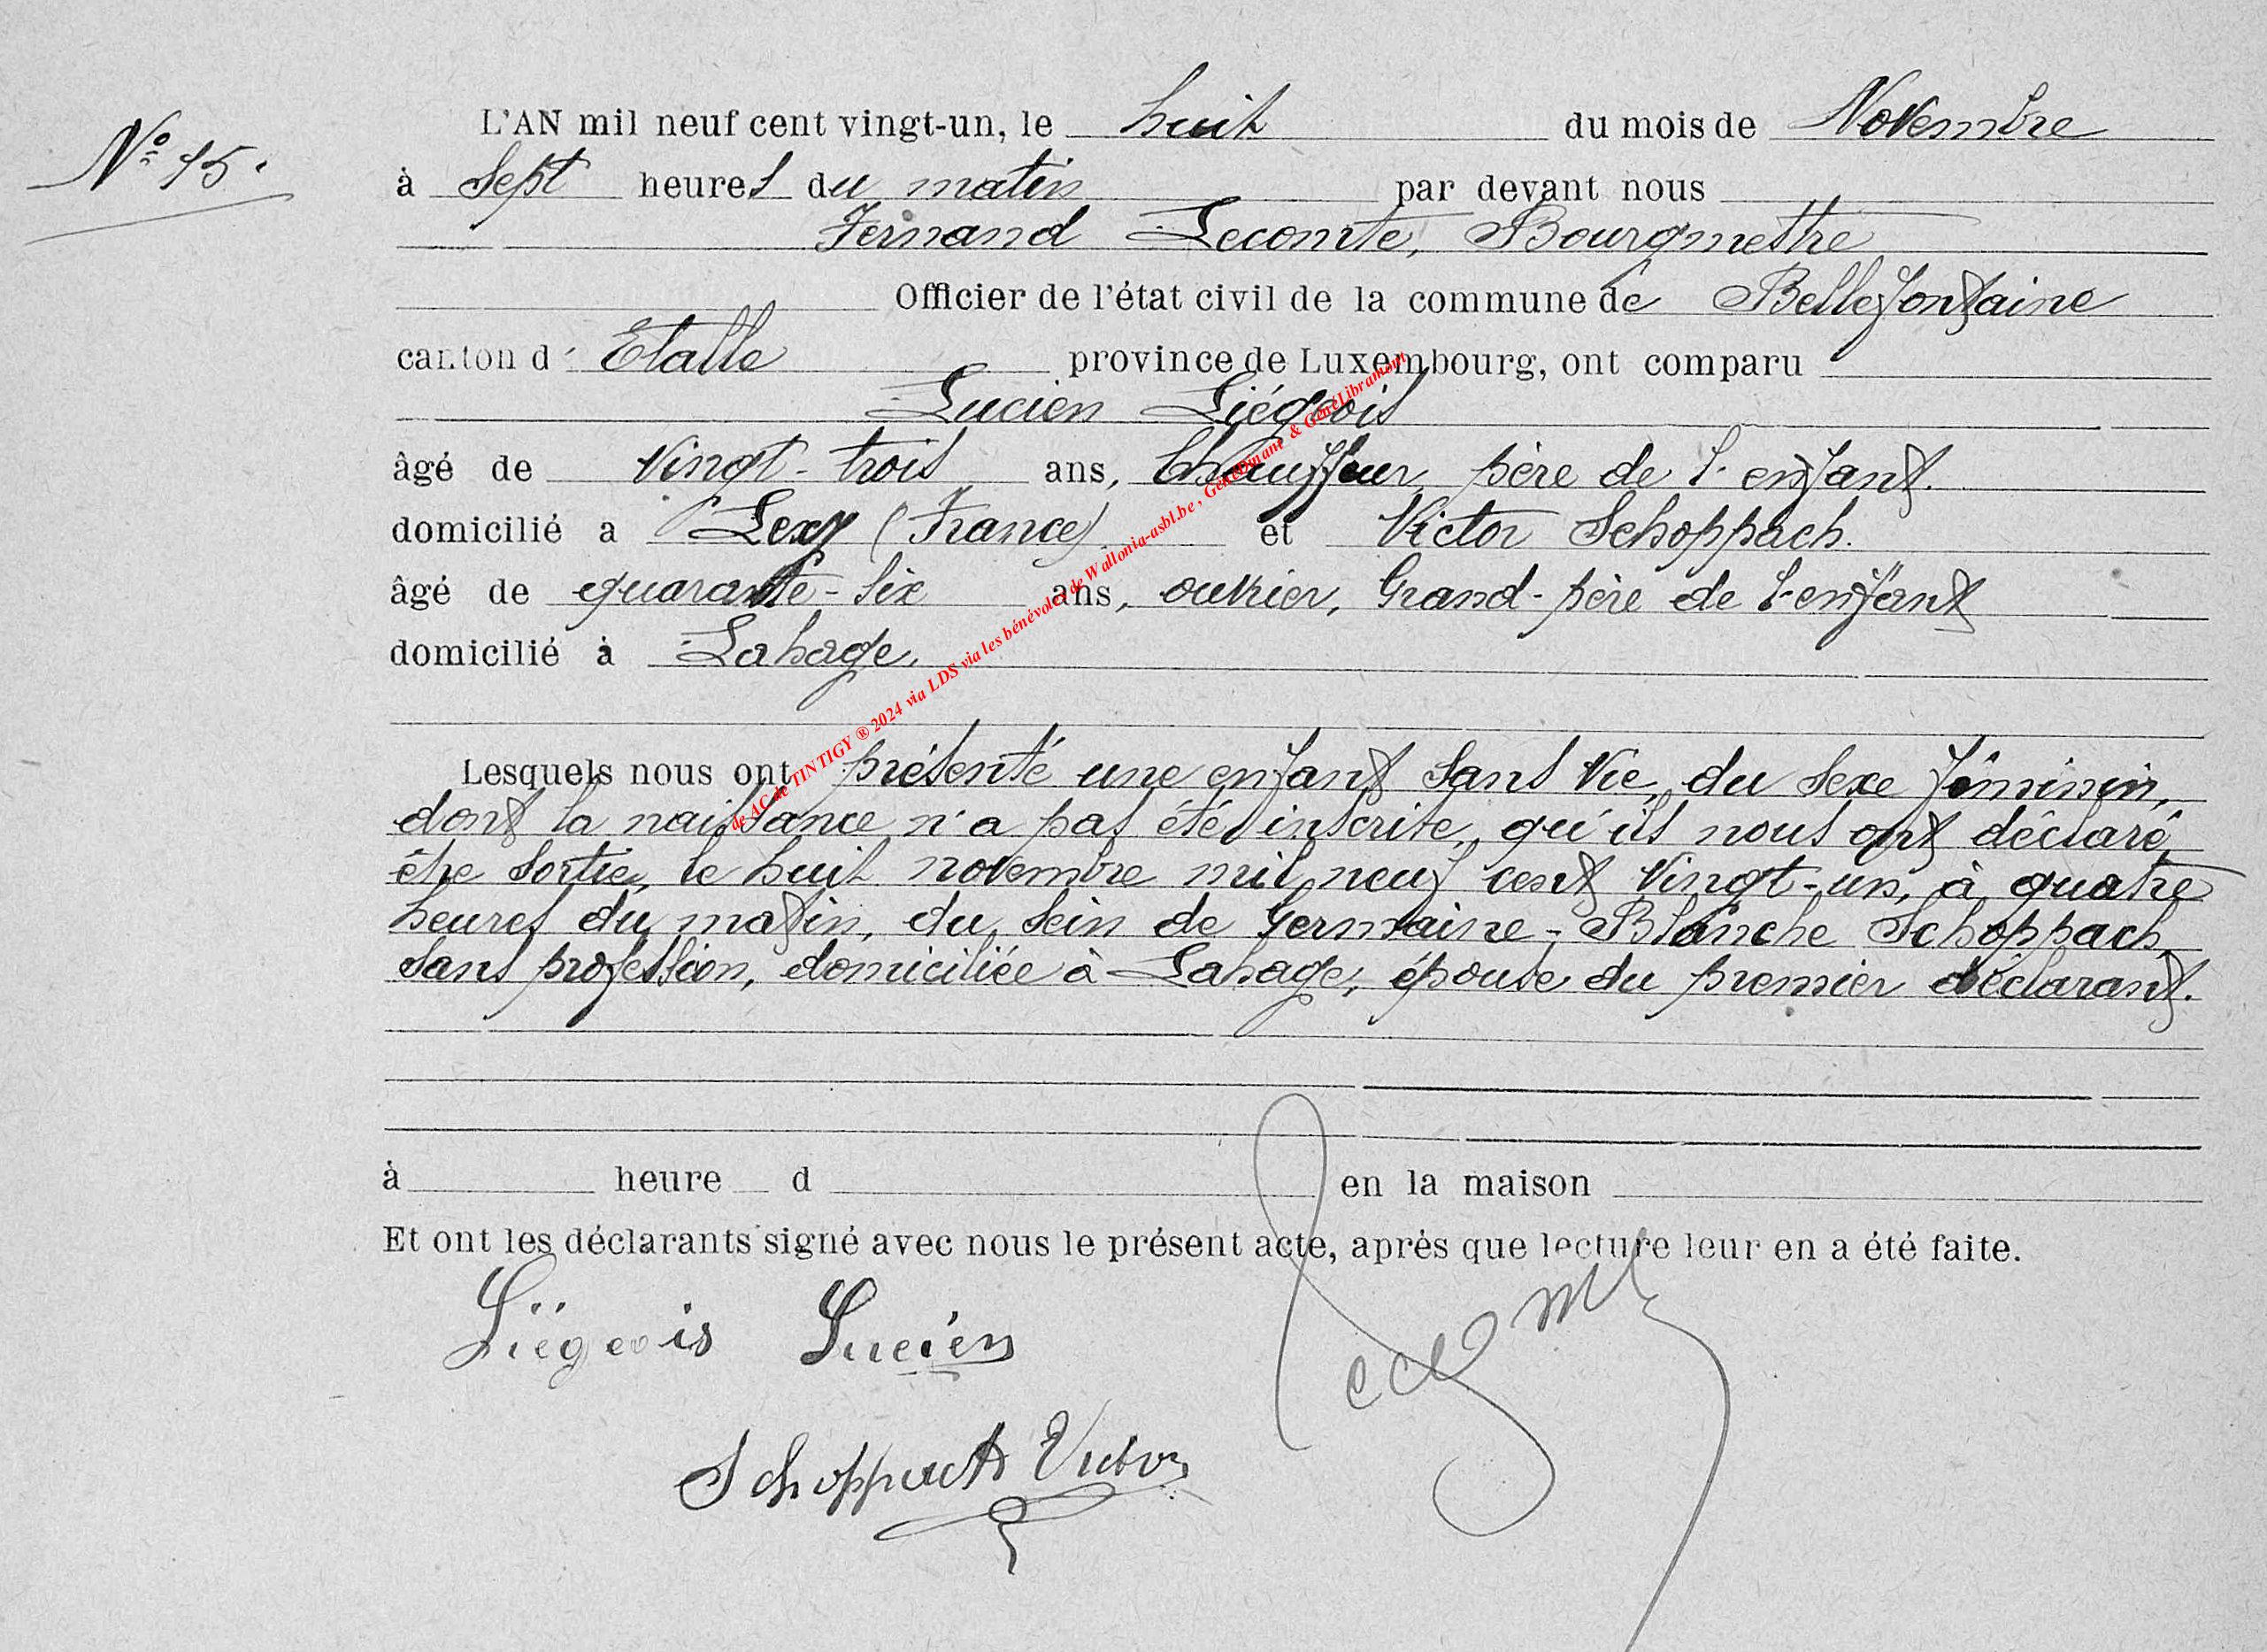 N° 15.
L'AN mil neuf cent vingt-un, le huit du mois de Novembre
à Sept heures du matin par devant nous
Fernand Lecomte, Bourgmestre
Officier de l'état civil de la commune de Bellefontaine
canton d' Etalle province de Luxembourg, ont comparu
Lucien Liégeois
âgé de vingt-trois ans, Chauffeur, père de l'enfant.
domicilié a Lexy (France) et Victor Schoppach.
âgé de quarante-six ans, ouvrier, Grand-père de l'enfant
domicilié à Lahage.
Lesquels nous ont présenté une enfant sans vie, du sexe féminin,
dont la naissance n'a pas été inscrite, qu'ils nous ont déclaré
être sortie, le huit novembre mil neuf cent vingt-un, à quatre
heures du matin, du sein de Germaine-Blanche Schoppach,
sans profession, domiciliée à Lahage, épouse du premier déclarant.
à heure d en la maison
Et ont les déclarants signé avec nous le présent acte, après que lecture leur en a été faite.
Liégeois Lucien
Lecomte
Schoppach Victor
de AC de TINTIGY ® 2024 via LDS via les bénévoles de Wallonia-asbl.be, GénéDinant & GénéLibramont